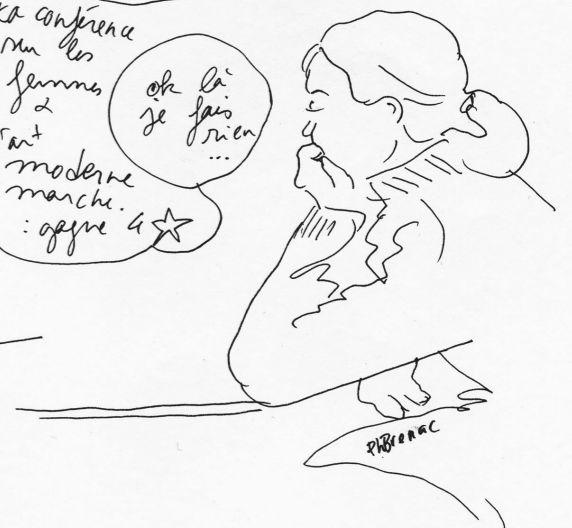 La conférence
sur les
femmes
&
l'art
moderne
marche.
: gagne 4
ok là
je fais
rien
...
PhBrenac